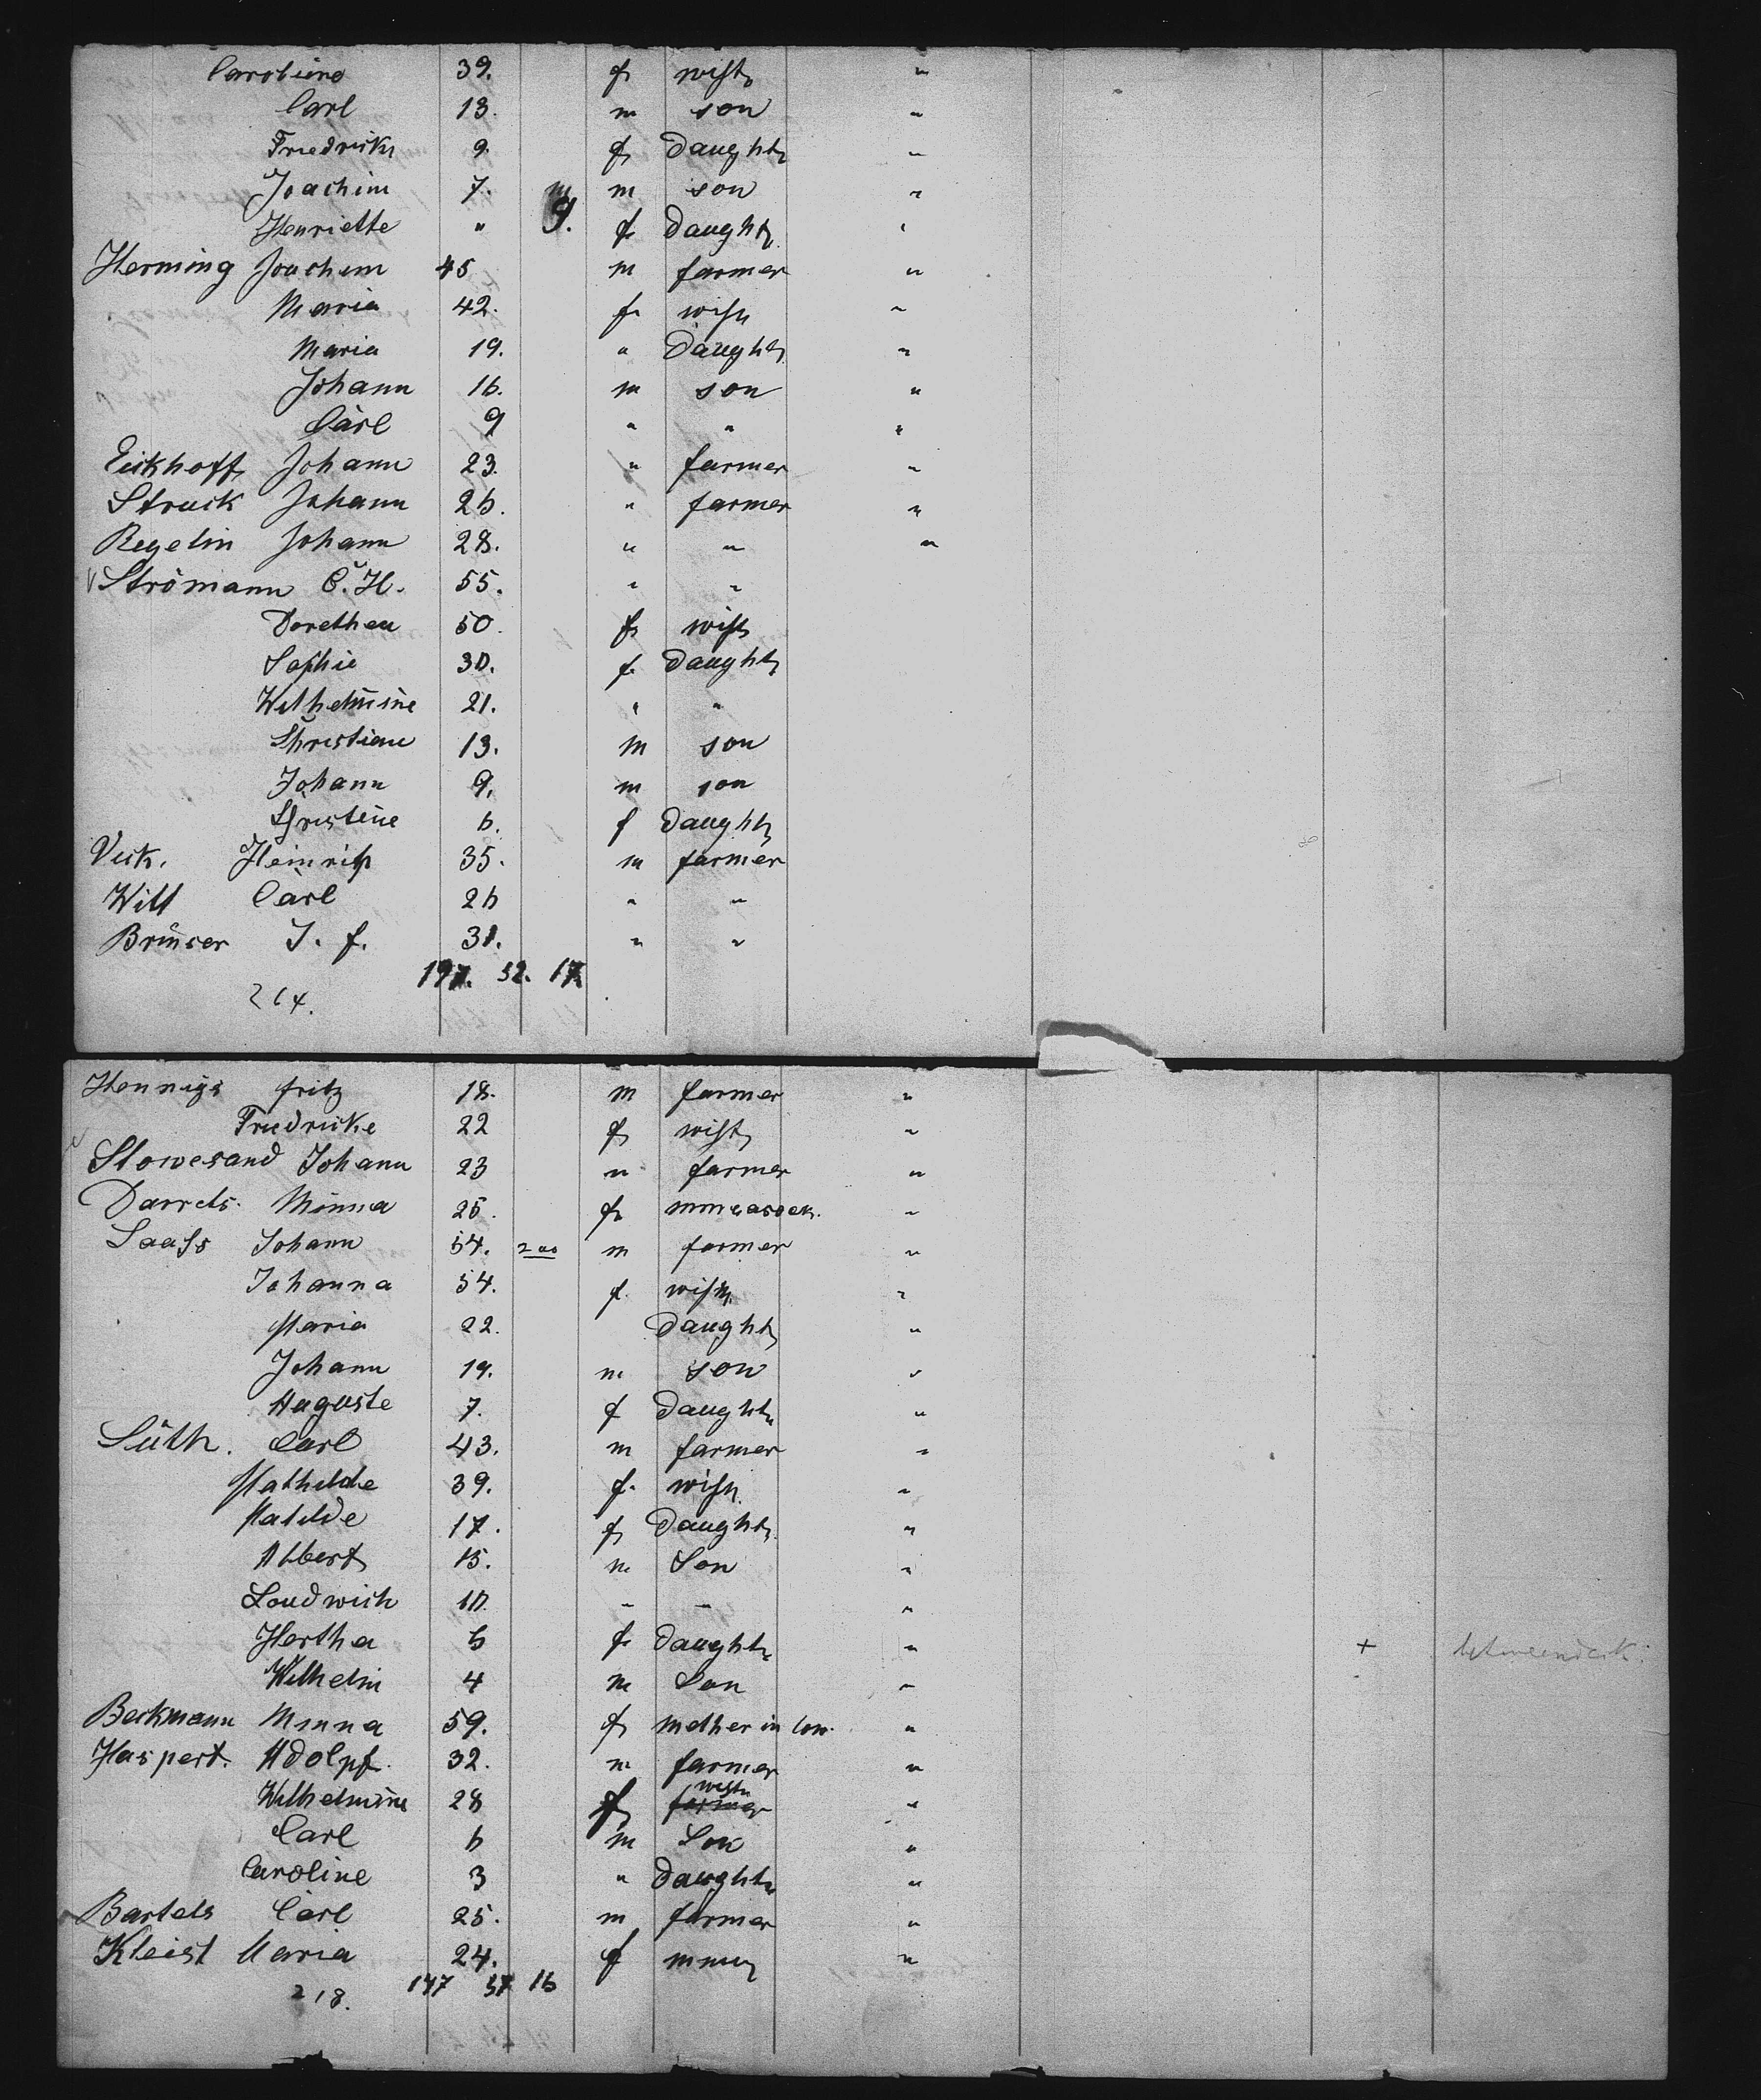 Caroline 39. f wife "
Carl 13. m son "
Friedrike 9. f Daught "
Joachim 7. m son "
Henriette " 9. f Daught "
Herming Joachim 45 m farmer "
Maria 42. f wife "
Maria 19. " Daught "
Johann 16. m son "
Carl 9 " " "
Eickhoff Johann 23. " farmer "
Struck Johann 26. " farmer "
Regelin Johann 28. " " "
Strömann C. H. 55. " "
Dorethea 50. f wife
Sophie 30. f Daught
Wilhelmine 21. " "
Christian 13. m son
Johann 9. m son
Christine 6. f Daught
Vick. Heinrich 35. m farmer
Witt Carl 26 " "
Brüser J. f. 31. " "
197. 32. 17.
214.
Hennigs fritz 18. m farmer "
Friedricke 22 f wife "
Stowesand Johann 23 " farmer "
Minna 25. f "
Saass Johann 54. m farmer "
Johanna 54. f. wife "
Maria 22. Daught "
Johann 19. m son "
Auguste 7. f Daught "
Süth. Carl 43. m farmer "
Mathilde 39. f. wife "
Matilde 17. f Daught "
Albert 15. m Son "
Loudwich 10. " " "
Hertha 6 f Daught " +
Wilhelm 4 m Son "
Beckmann Minna 59. f mother in law. "
Haspert. Adolpf. 32. m farmer "
Wilhelmine 28 f farmer wife "
Carl 6 m Son "
Caroline 3 " Daught "
Bartels Carl 25. m farmer "
Kleist Maria 24. f "
147 57 16
218.